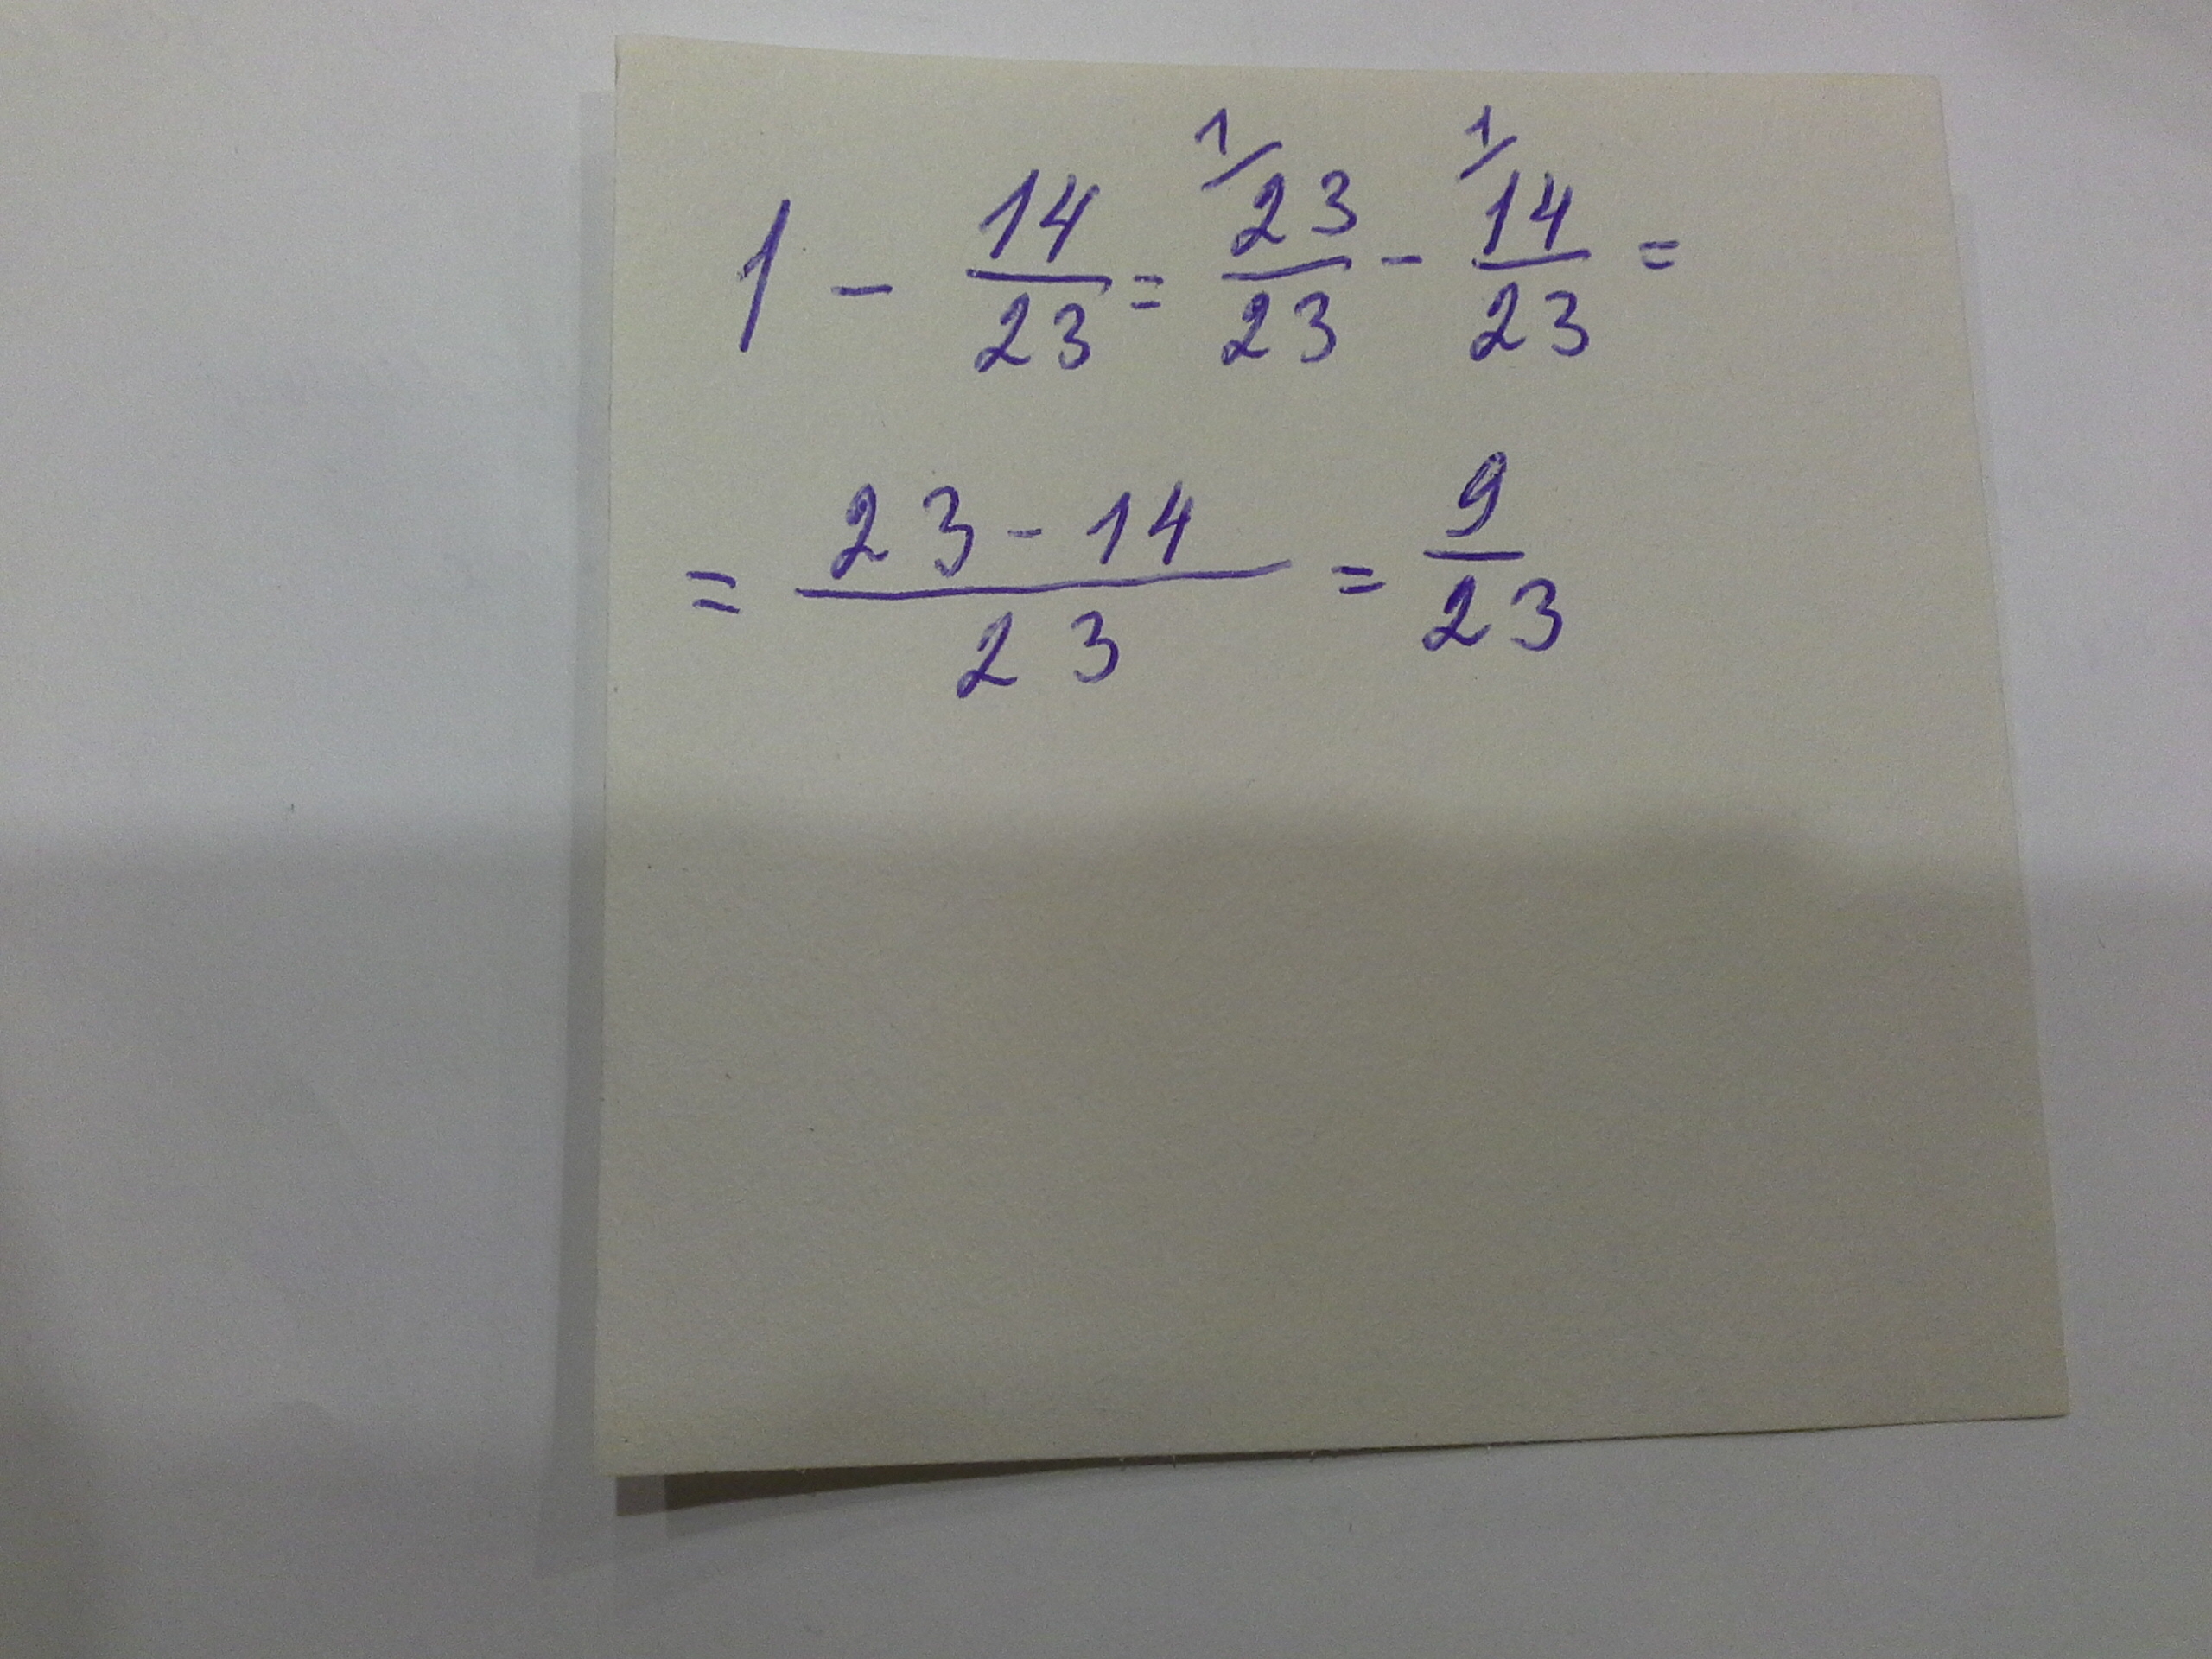 1 - 14/23 = 1/ 23/23 - 1/ 14/23 =
= 23 - 14/23 = 9/23